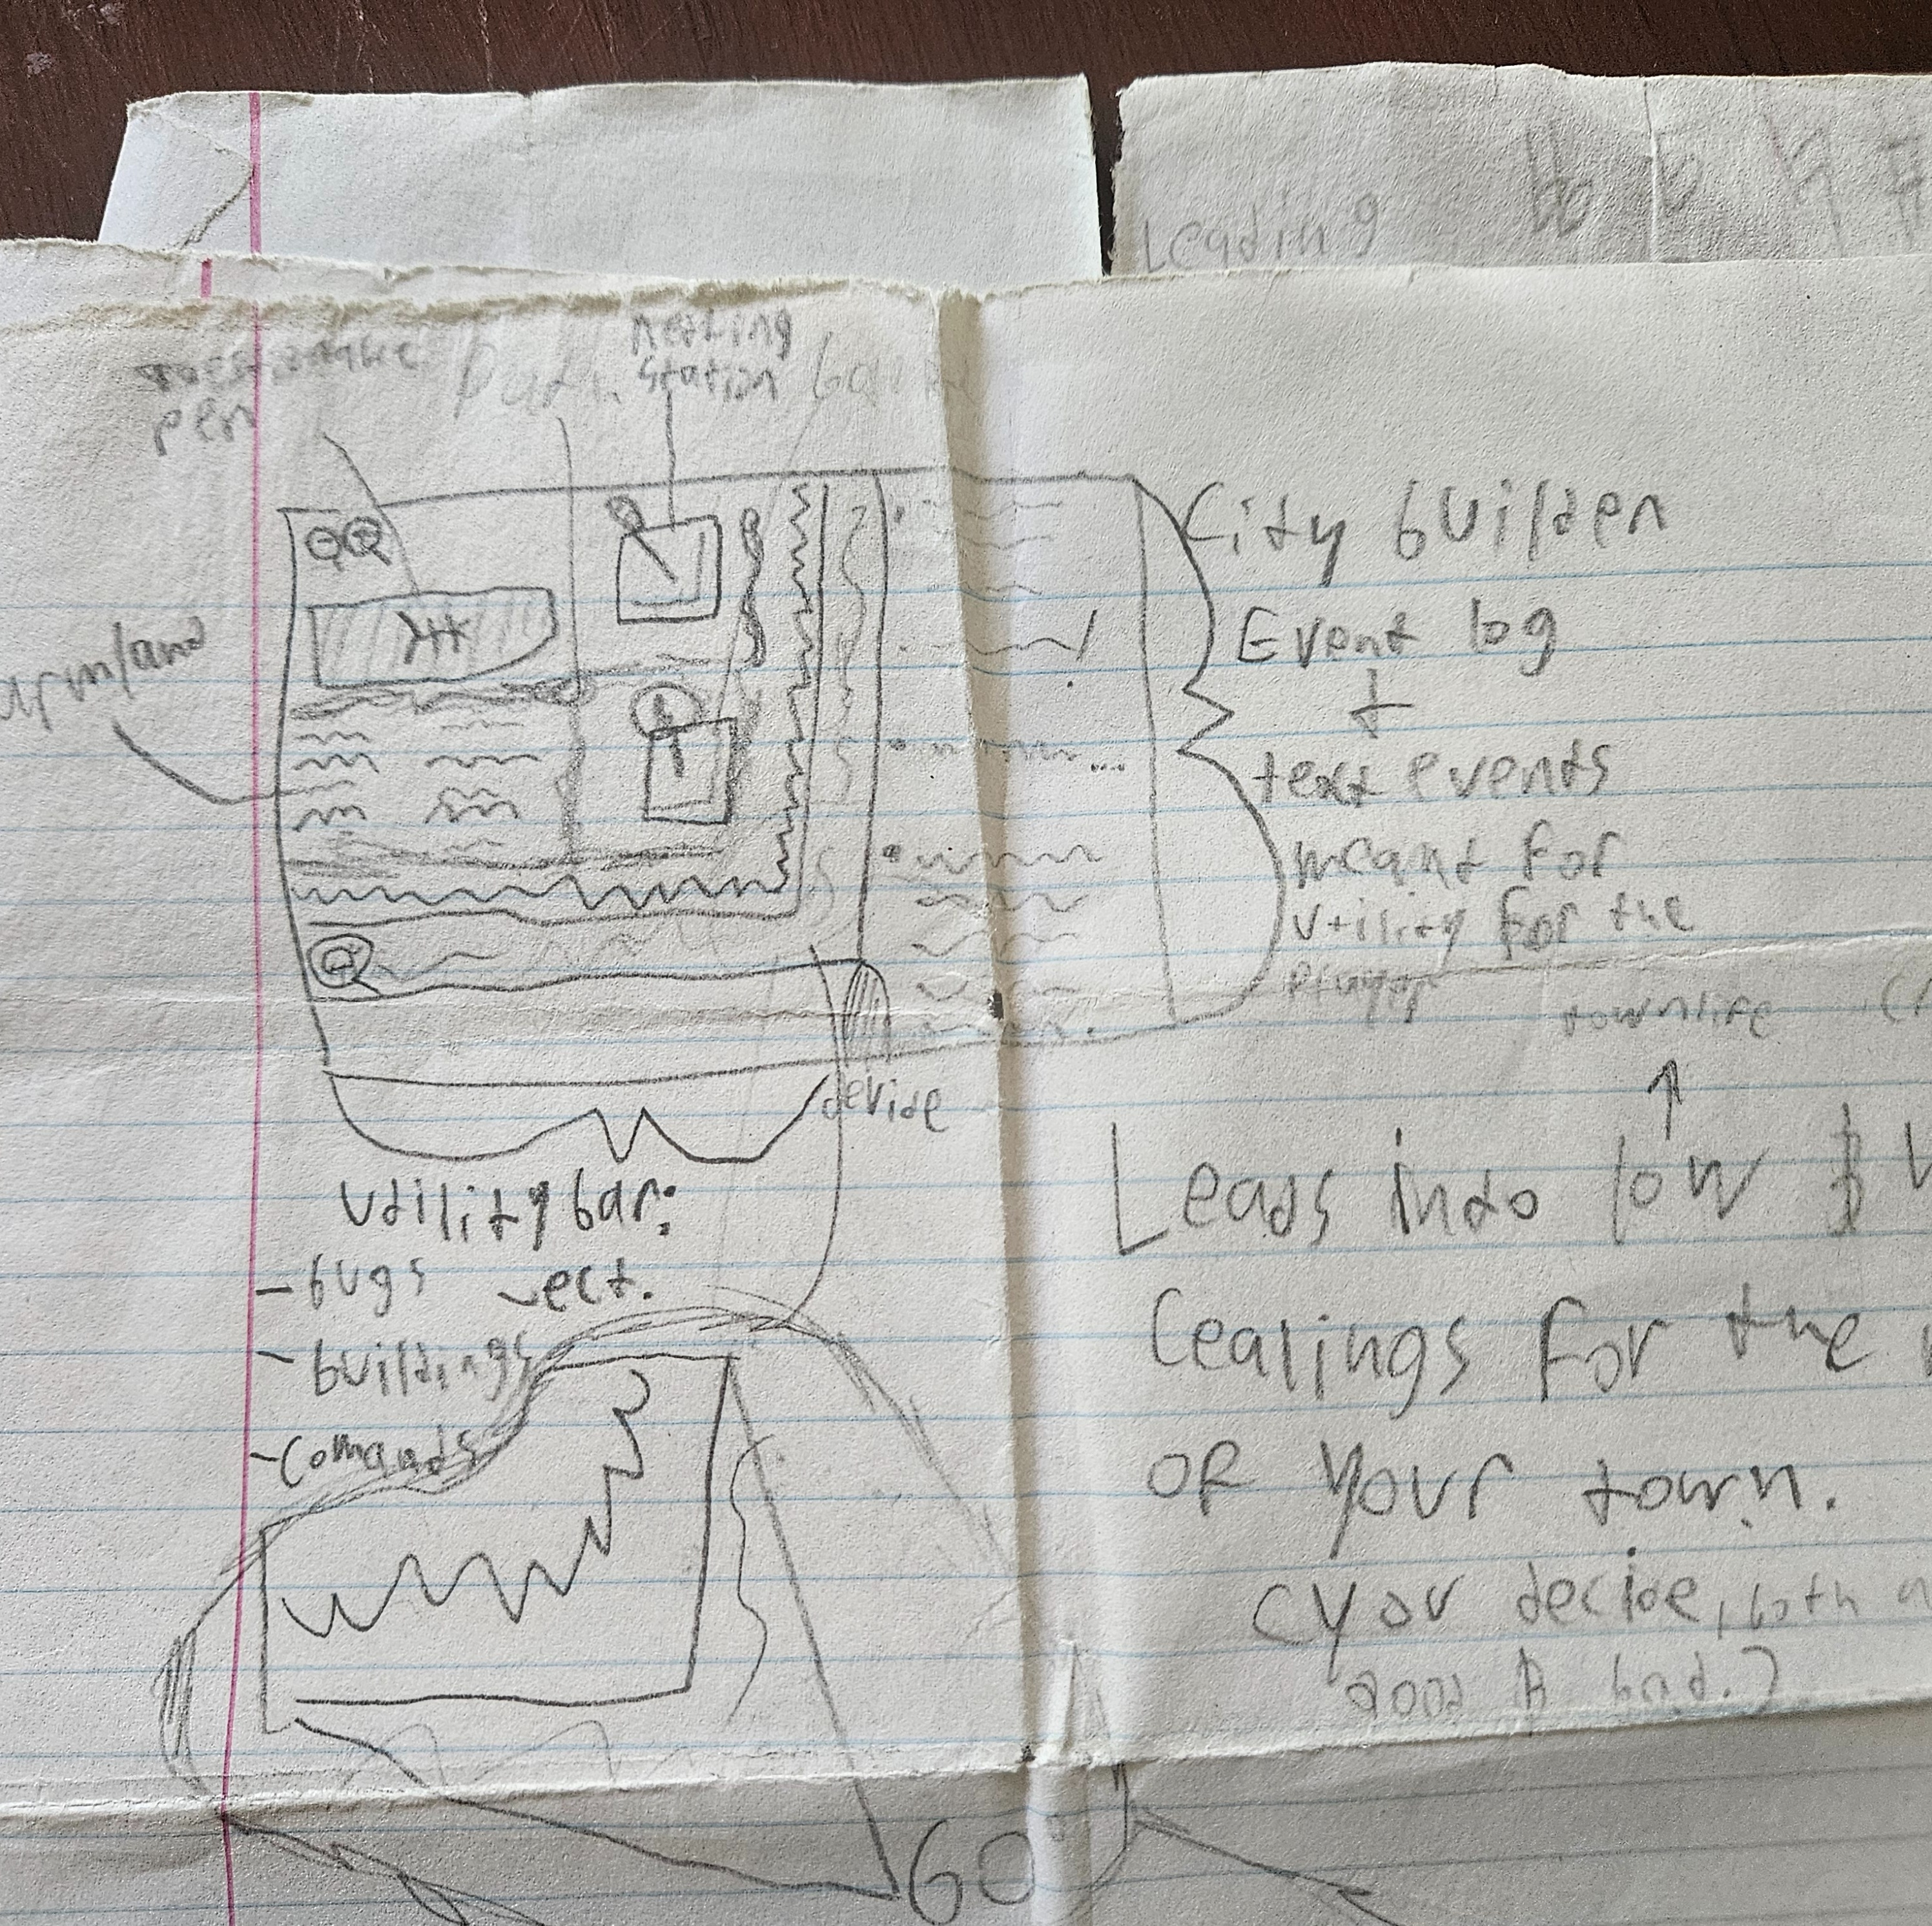 Leading
Station
pen
City builder
Event log
+
text events
meant for
utility for the
player
townlife
armland
device
Utility bar:
- bugs ect.
- buildings
- Comands
Leads into low $
Cealings for the
of your town.
(you decide, both
good & bad.)
60°